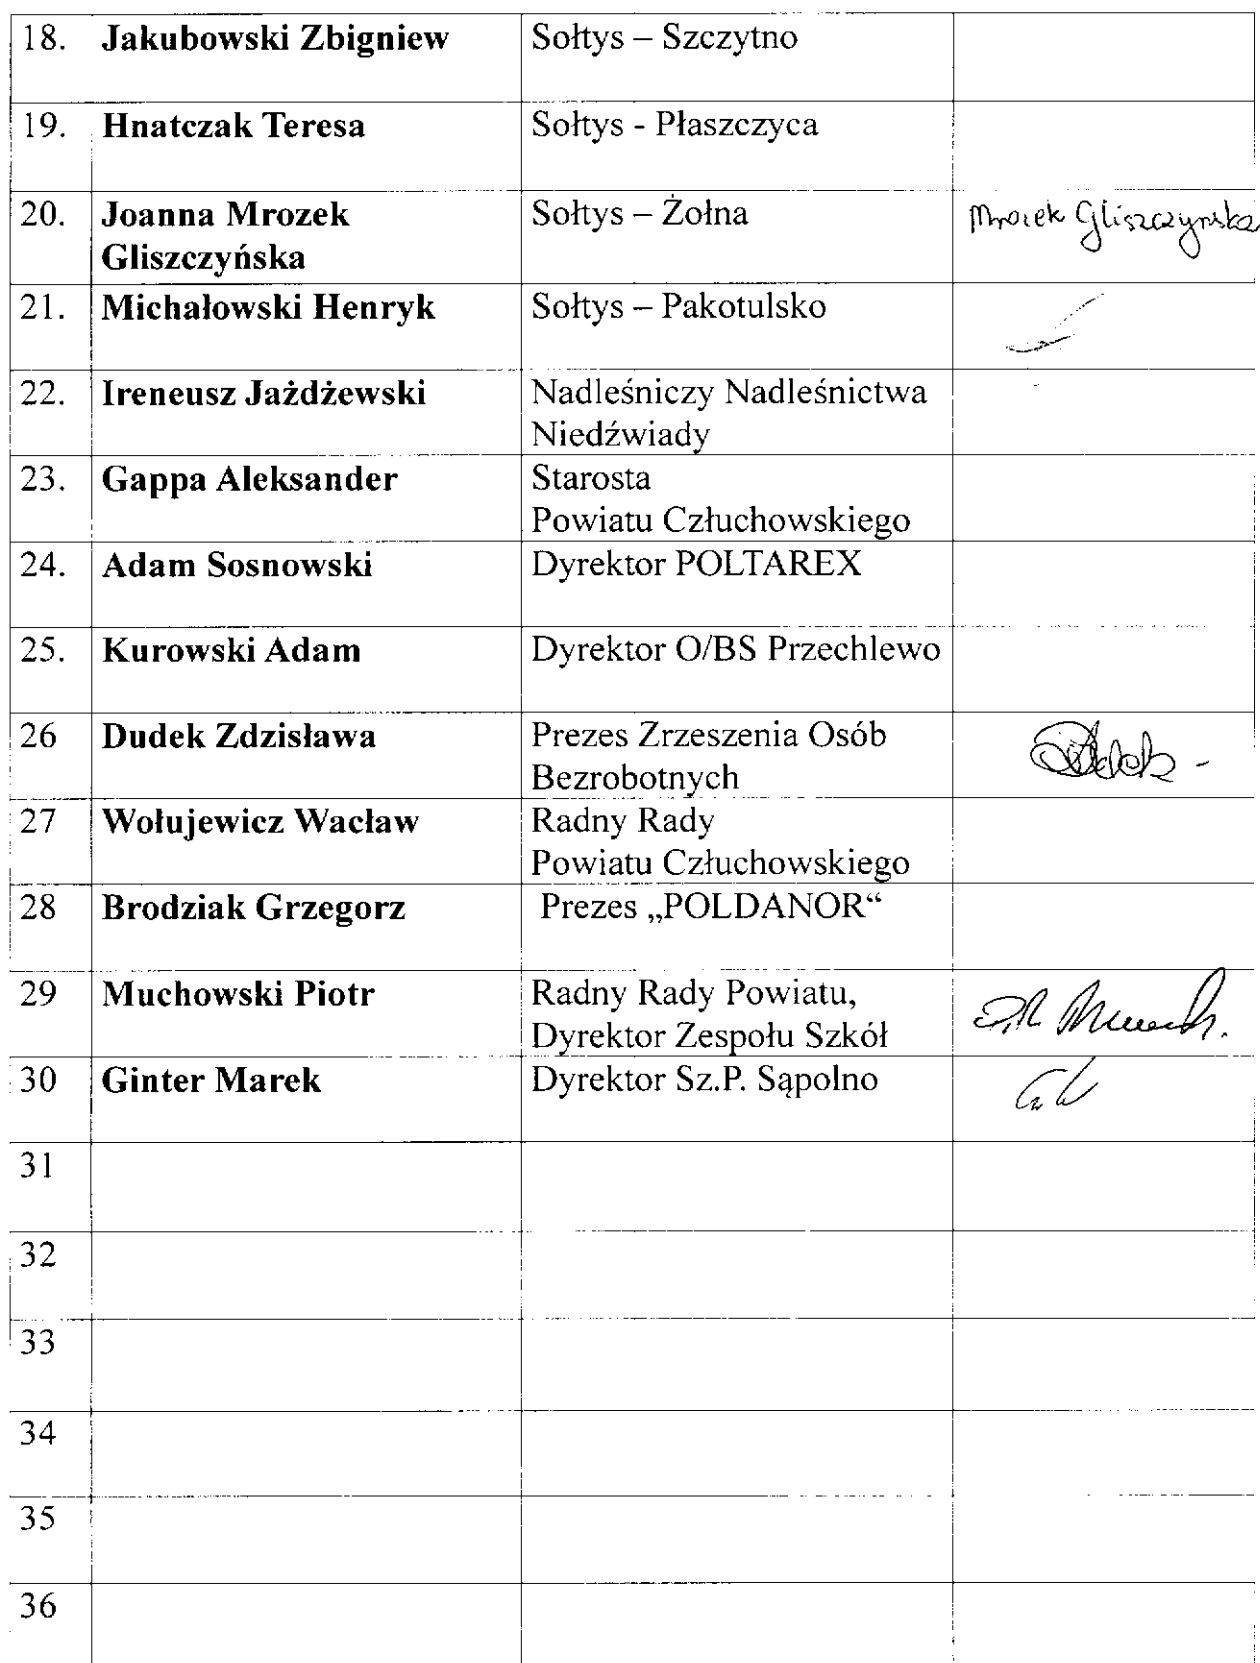 18. Jakubowski Zbigniew Sołtys – Szczytno
19. Hnatczak Teresa Sołtys - Płaszczyca
20. Joanna Mrozek Sołtys – Żołna Mrozek Gliszczyńska
Gliszczyńska
21. Michałowski Henryk Sołtys – Pakotulsko
22. Ireneusz Jażdżewski Nadleśniczy Nadleśnictwa
Niedźwiady
23. Gappa Aleksander Starosta
Powiatu Człuchowskiego
24. Adam Sosnowski Dyrektor POLTAREX
25. Kurowski Adam Dyrektor O/BS Przechlewo
26 Dudek Zdzisława Prezes Zrzeszenia Osób
Bezrobotnych
27 Wołujewicz Wacław Radny Rady
Powiatu Człuchowskiego
28 Brodziak Grzegorz Prezes „POLDANOR“
29 Muchowski Piotr Radny Rady Powiatu,
Dyrektor Zespołu Szkół
30 Ginter Marek Dyrektor Sz.P. Sąpolno
31
32
33
34
35
36